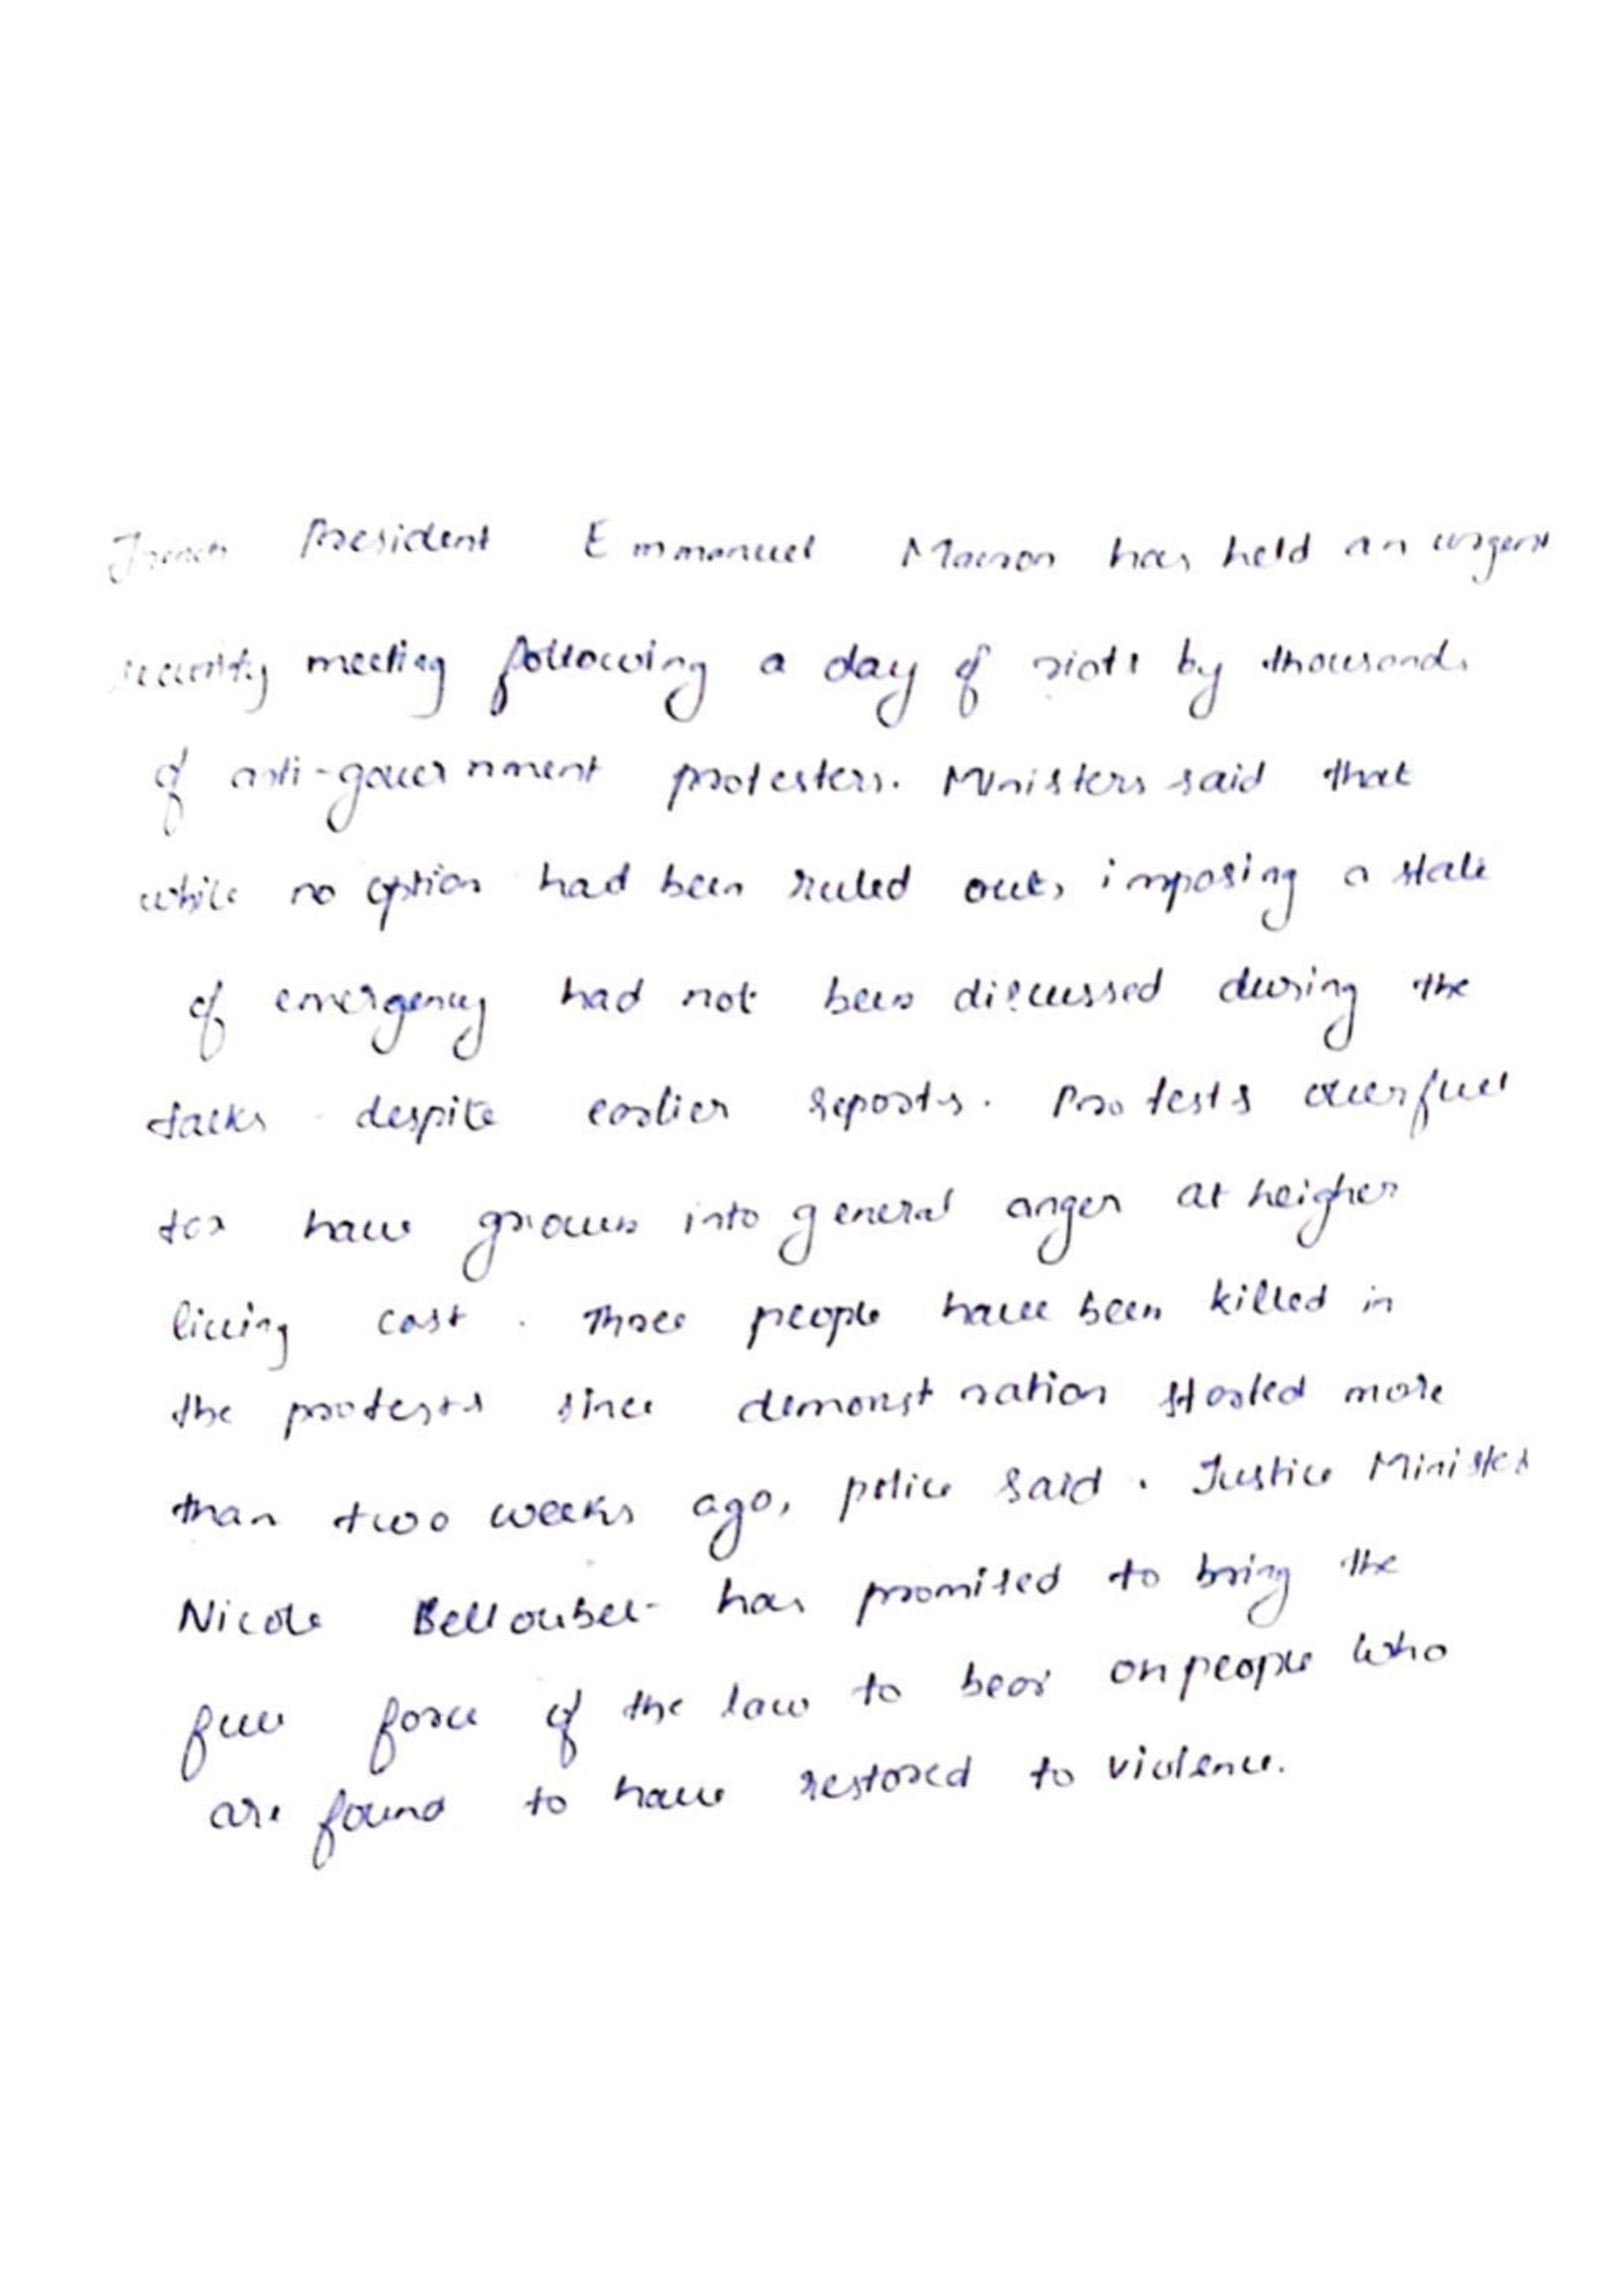 French President Emmanuel Macron has held an urgent
security meeting following a day of riots by thousands
of anti-government protesters. Ministers said that
while no option had been ruled out, imposing a state
of emergency had not been discussed during the
talks despite earlier reports. Protests over fuel
tax have grown into general anger at heigher
living cost. Three people have been killed in
the protests since demonstration started more
than two weeks ago, police said. Justice Minister
Nicole Belloubet has promised to bring the
full force of the law to bear on people who
are found to have restored to violence.